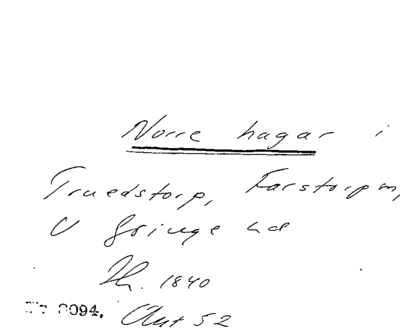 Norre hagar i
Truedstorp, Farstorp
V Göinge hd
1840
094. Akt 52